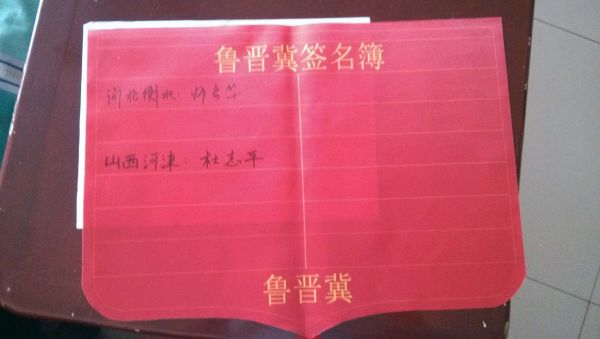 鲁晋冀签名簿
河北衡水：师
山西河津：杜志平
鲁晋冀